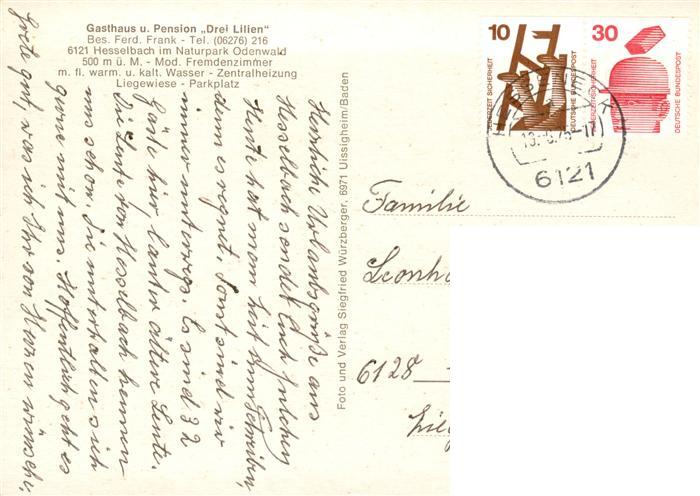 Gasthaus u. Pension „Drei Lilien"
Bes. Ferd. Frank - Tel. (06276) 216
6121 Hesselbach im Naturpark Odenwald
500 m ü. M. - Mod. Fremdenzimmer
m. fl. warm. u. kalt. Wasser - Zentralheizung
Liegewiese - Parkplatz
Herzliche Urlaubsgrüße aus
Hesselbach sendet Euch
Heute hat man Zeit zum Schreiben,
denn es regnet. Sonst sind wir
immer unterwegs. Es sind 32
Gäste hier, lauter ältere Leute.
Die Leute von Hesselbach kennen
uns schon. Sie unterhalten sich
gerne mit uns. Hoffentlich geht es
Euch gut, was ich Ihr von Herzen wünsche,
Foto und Verlag Siegfried Würzberger, 6971 Uissigheim/Baden
10
JEDERZEIT SICHERHEIT
DEUTSCHE BUNDESPOST
30
JEDERZEIT SICHERHEIT
DEUTSCHE BUNDESPOST
6121
Familie
Leonh
6128